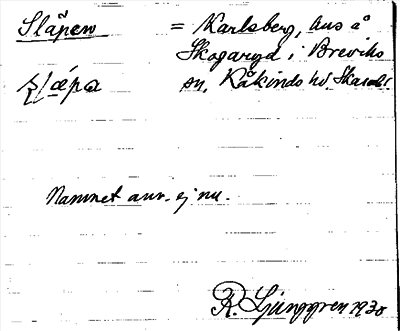 Släpen = Karlsberg, hus å
Skogaryd i Breviks
sn, Kåkinds hd. Skarab.l.
Namnet anv. ej nu.
R. Ljunggren 1930